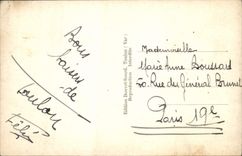 Bons
baisers
de
Toulon
Édition
Toulon - Var -
Reproduction interdite
Mademoiselle
Marie
50 Rue du Général Brunet
Paris 19e